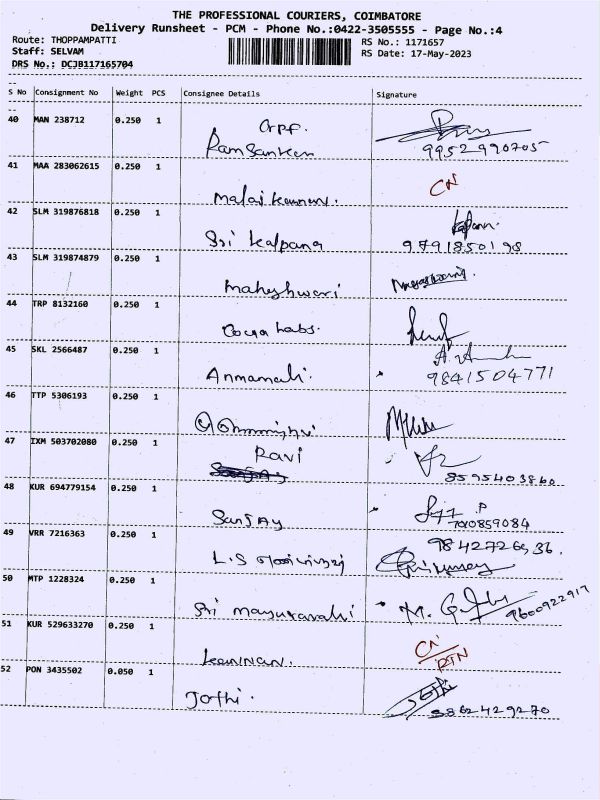 THE PROFESSIONAL COURIERS, COIMBATORE
Delivery Runsheet - PCM - Phone No.:0422-3505555 - Page No.:4
Route: THOPPAMPATTI
RS No.: 1171657
Staff: SELVAM
RS Date: 17-May-2023
DRS No.: DCJB117165704
S No Consignment No Weight PCS Consignee Details Signature
40 MAN 238712 0.250 1
CRPF.
Ram Sankar
9952990705
41 MAA 283062615 0.250 1
CN
Malai kannan.
42 SLM 319876818 0.250 1
Sri kalpana 9791850198
43 SLM 319874879 0.250 1
Maheshwari
44 TRP 8132160 0.250 1
Cocya Labs.
45 SKL 2566487 0.250 1
Annamali. 9841504771
46 TTP 5306193 0.250 1
47 IXM 503702080 0.250 1
Ravi
8595403860
48 KUR 694779154 0.250 1
Sanjay 7010859084
49 VRR 7216363 0.250 1
9842726536.
L.S
50 MTP 1228324 0.250 1
Sri mayuranathi M. 9600922917
51 KUR 529633270 0.250 1
CN
RTN
kannnan.
52 PON 3435502 0.050 1
Jothi. 9862429270